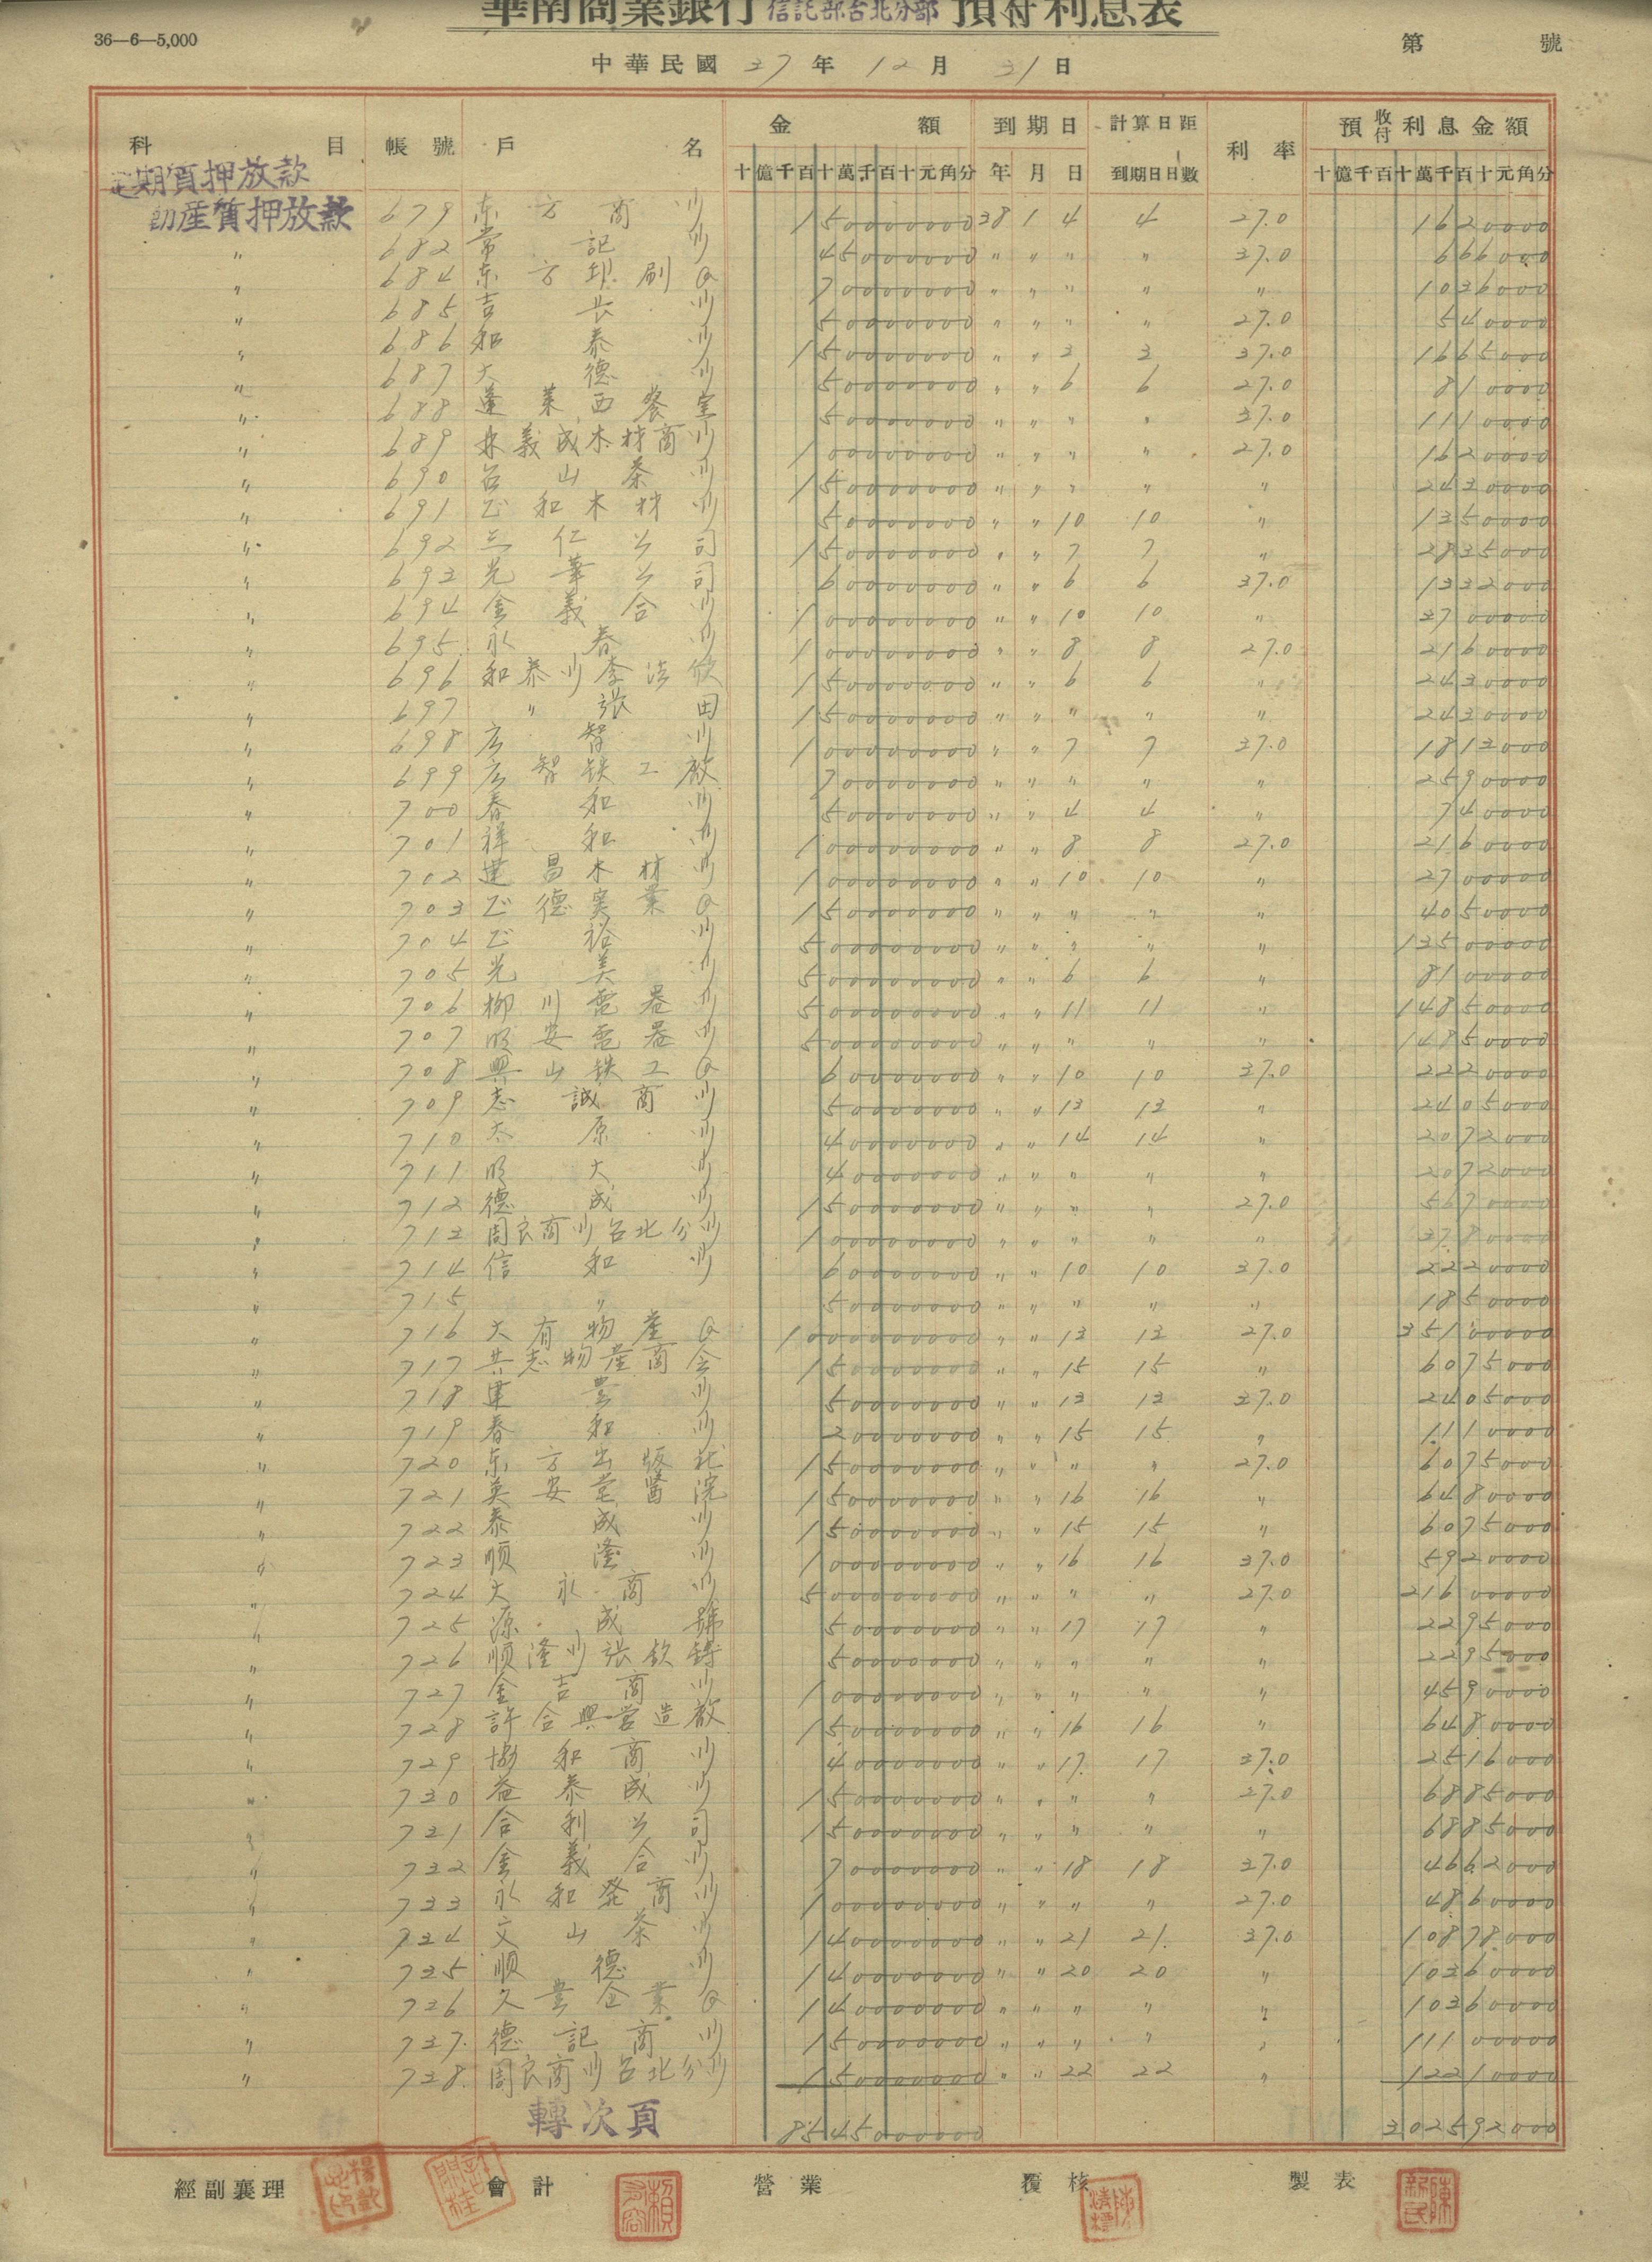 華南商業銀行 信託部台北分部 預付利息表
36—6—5,000
第 號
中華民國 37 年 12 月 31 日
科目 帳號 戶名 金額 到期日 計算日距到期日日數 利率 預收付利息金額
十億千百十萬千百十元角分 年 月 日 十億千百十萬千百十元角分
定期質押放款
動產質押放款 679 东方商行 1500000000 38 1 4 4 27.0 1620000
〃 682 常記行 450000000 〃 〃 〃 〃 37.0 666000
〃 684 东方印刷 700000000 〃 〃 〃 〃 〃 1036000
〃 685 吉長行 500000000 〃 〃 〃 〃 27.0 540000
〃 686 和泰行 1500000000 〃 〃 3 3 37.0 1665000
〃 687 大德行 500000000 〃 〃 6 6 27.0 810000
〃 688 蓬萊西餐室 500000000 〃 〃 〃 〃 37.0 1110000
〃 689 義成木材商行 1000000000 〃 〃 〃 〃 27.0 1620000
〃 690 台山茶行 1500000000 〃 〃 〃 〃 〃 2430000
〃 691 正和木材行 500000000 〃 〃 10 10 〃 1350000
〃 692 三仁公司 1500000000 〃 〃 7 7 〃 2835000
〃 693 光華公司 600000000 〃 〃 6 6 37.0 1332000
〃 694 金義合行 1000000000 〃 〃 10 10 〃 3700000
〃 695 永春行 1000000000 〃 〃 8 8 27.0 2160000
〃 696 和泰行李 1500000000 〃 〃 6 6 〃 2430000
〃 697 〃 張田 1500000000 〃 〃 〃 〃 〃 2430000
〃 698 広智行 1000000000 〃 〃 7 7 37.0 1813000
〃 699 広智鉄工廠 700000000 〃 〃 〃 〃 〃 2590000
〃 700 春和行 500000000 〃 〃 4 4 〃 740000
〃 701 祥和行 1000000000 〃 〃 8 8 27.0 2160000
〃 702 建昌木材行 1000000000 〃 〃 10 10 〃 2700000
〃 703 正德実業 1500000000 〃 〃 〃 〃 〃 4050000
〃 704 正裕行 5000000000 〃 〃 〃 〃 〃 13500000
〃 705 光美行 5000000000 〃 〃 6 6 〃 8100000
〃 706 柳川電器行 5000000000 〃 〃 11 11 〃 14850000
〃 707 安電器行 5000000000 〃 〃 〃 〃 〃 14850000
〃 708 興山鉄工 600000000 〃 〃 10 10 37.0 2220000
〃 709 志誠商行 500000000 〃 〃 13 13 〃 2405000
〃 710 太原行 400000000 〃 〃 14 14 〃 2072000
〃 711 大行 400000000 〃 〃 〃 〃 〃 2072000
〃 712 德成行 1500000000 〃 〃 〃 〃 27.0 5670000
〃 713 周良商行台北分行 1000000000 〃 〃 〃 〃 〃 3780000
〃 714 信和行 600000000 〃 〃 10 10 37.0 2220000
〃 715 〃 500000000 〃 〃 〃 〃 〃 1850000
〃 716 大有物產 10000000000 〃 〃 13 13 27.0 35100000
〃 717 共志物產商会 1500000000 〃 〃 15 15 〃 6075000
〃 718 建豊行 500000000 〃 〃 13 13 37.0 2405000
〃 719 春和行 200000000 〃 〃 15 15 〃 1110000
〃 720 东方出版社 1500000000 〃 〃 〃 〃 27.0 6075000
〃 721 英安堂醫院 1500000000 〃 〃 16 16 〃 6480000
〃 722 泰成行 1500000000 〃 〃 15 15 〃 6075000
〃 723 順隆行 1000000000 〃 〃 16 16 37.0 5920000
〃 724 大永商行 5000000000 〃 〃 〃 〃 27.0 21600000
〃 725 源成號 500000000 〃 〃 17 17 〃 2295000
〃 726 順隆行張欽鋳 500000000 〃 〃 〃 〃 〃 2295000
〃 727 金吉商行 1000000000 〃 〃 〃 〃 〃 4590000
〃 728 許合興营造廠 1500000000 〃 〃 16 16 〃 6480000
〃 729 協和商行 400000000 〃 〃 17 17 37.0 2516000
〃 730 益泰成行 1500000000 〃 〃 〃 〃 27.0 6885000
〃 731 合利公司 1500000000 〃 〃 〃 〃 〃 6885000
〃 732 金義合行 700000000 〃 〃 18 18 37.0 4662000
〃 733 永和発商行 1000000000 〃 〃 〃 〃 27.0 4860000
〃 734 文山茶行 1400000000 〃 〃 21 21 37.0 10878000
〃 735 順德行 1400000000 〃 〃 20 20 〃 10360000
〃 736 久豊企業 1400000000 〃 〃 〃 〃 〃 10360000
〃 737 德記商行 1500000000 〃 〃 〃 〃 〃 11100000
〃 738 周良商行台北分行 1500000000 〃 〃 22 22 〃 12210000
轉次頁 85450000000 302592000
經副襄理 會計 營業 覆核 製表